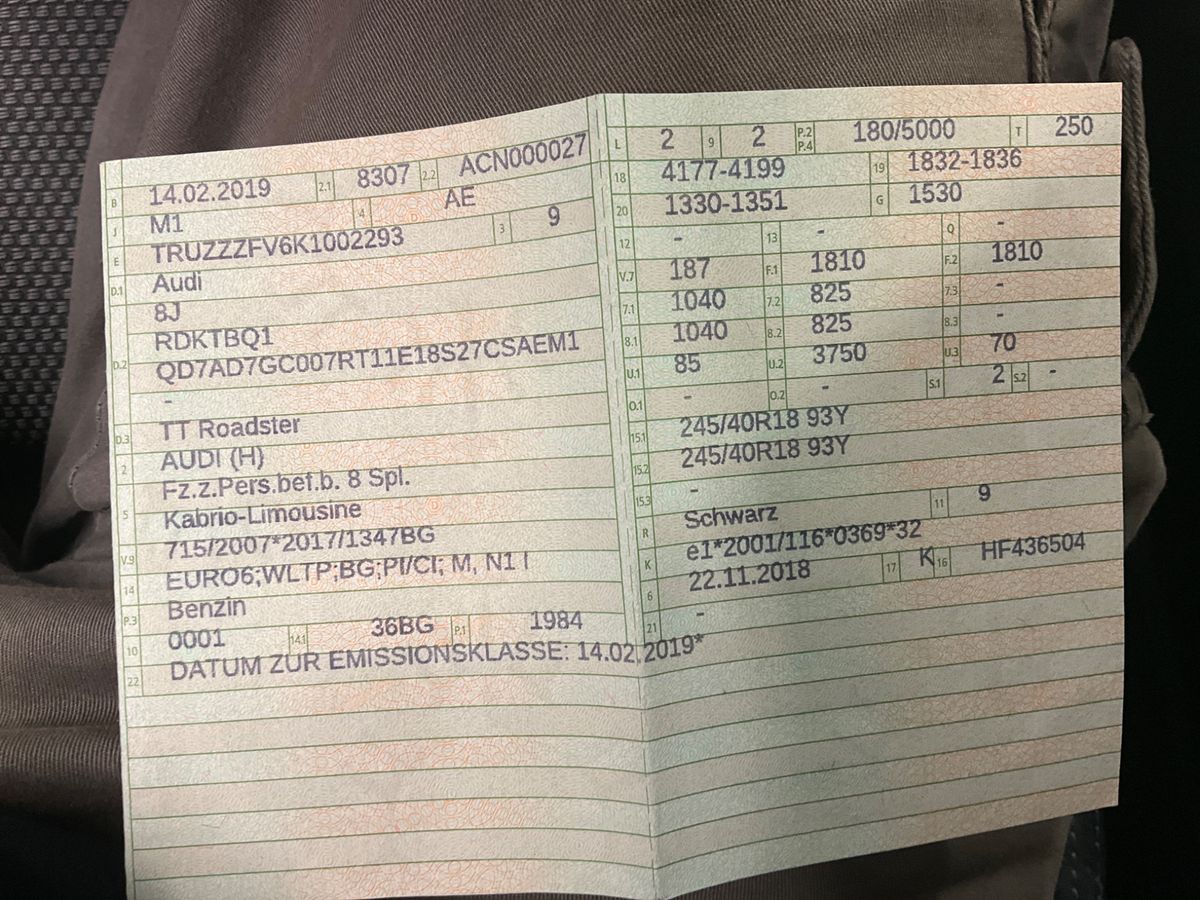 B 14.02.2019 2.1 8307 2.2 ACN000027
J M1 4 AE
E TRUZZZFV6K1002293 3 9
D.1 Audi
8J
RDKTBQ1
D.2 QD7AD7GC007RT11E18S27CSAEM1
-
D.3 TT Roadster
2 AUDI (H)
Fz.z.Pers.bef.b. 8 Spl.
5 Kabrio-Limousine
715/2007*2017/1347BG
V.9 EURO6;WLTP;BG;PI/CI; M, N1 I
14 Benzin
P.3
10 0001 14.1 36BG P.1 1984
22 DATUM ZUR EMISSIONSKLASSE: 14.02.2019*
L 2 9 2 P.2 P.4 180/5000 T 250
18 4177-4199 19 1832-1836
20 1330-1351 G 1530
12 - 13 - Q -
V.7 187 F.1 1810 F.2 1810
7.1 1040 7.2 825 7.3 -
8.1 1040 8.2 825 8.3 -
U.1 85 U.2 3750 U.3 70
O.1 - O.2 - S.1 2 S.2 -
15.1 245/40R18 93Y
15.2 245/40R18 93Y
15.3 -
R Schwarz 11 9
K e1*2001/116*0369*32
6 22.11.2018 17 K 16 HF436504
21 -